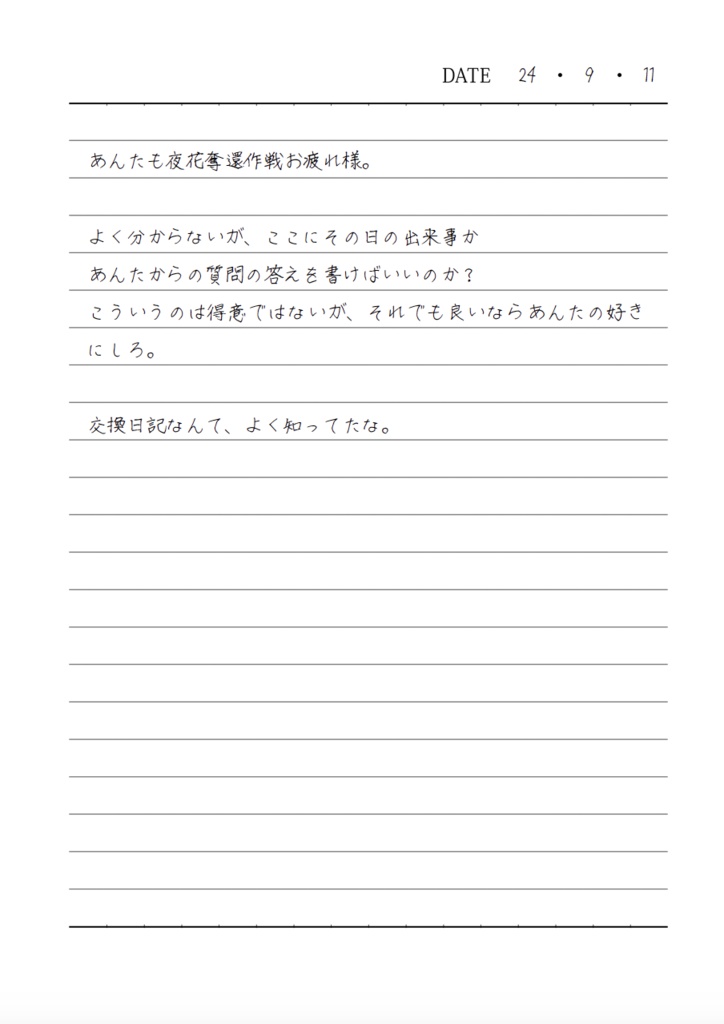 DATE 24・9・11
あんたも夜花奪還作戦お疲れ様。
よく分からないが、ここにその日の出来事か
あんたからの質問の答えを書けばいいのか？
こういうのは得意ではないが、それでも良いならあんたの好き
にしろ。
交換日記なんて、よく知ってたな。